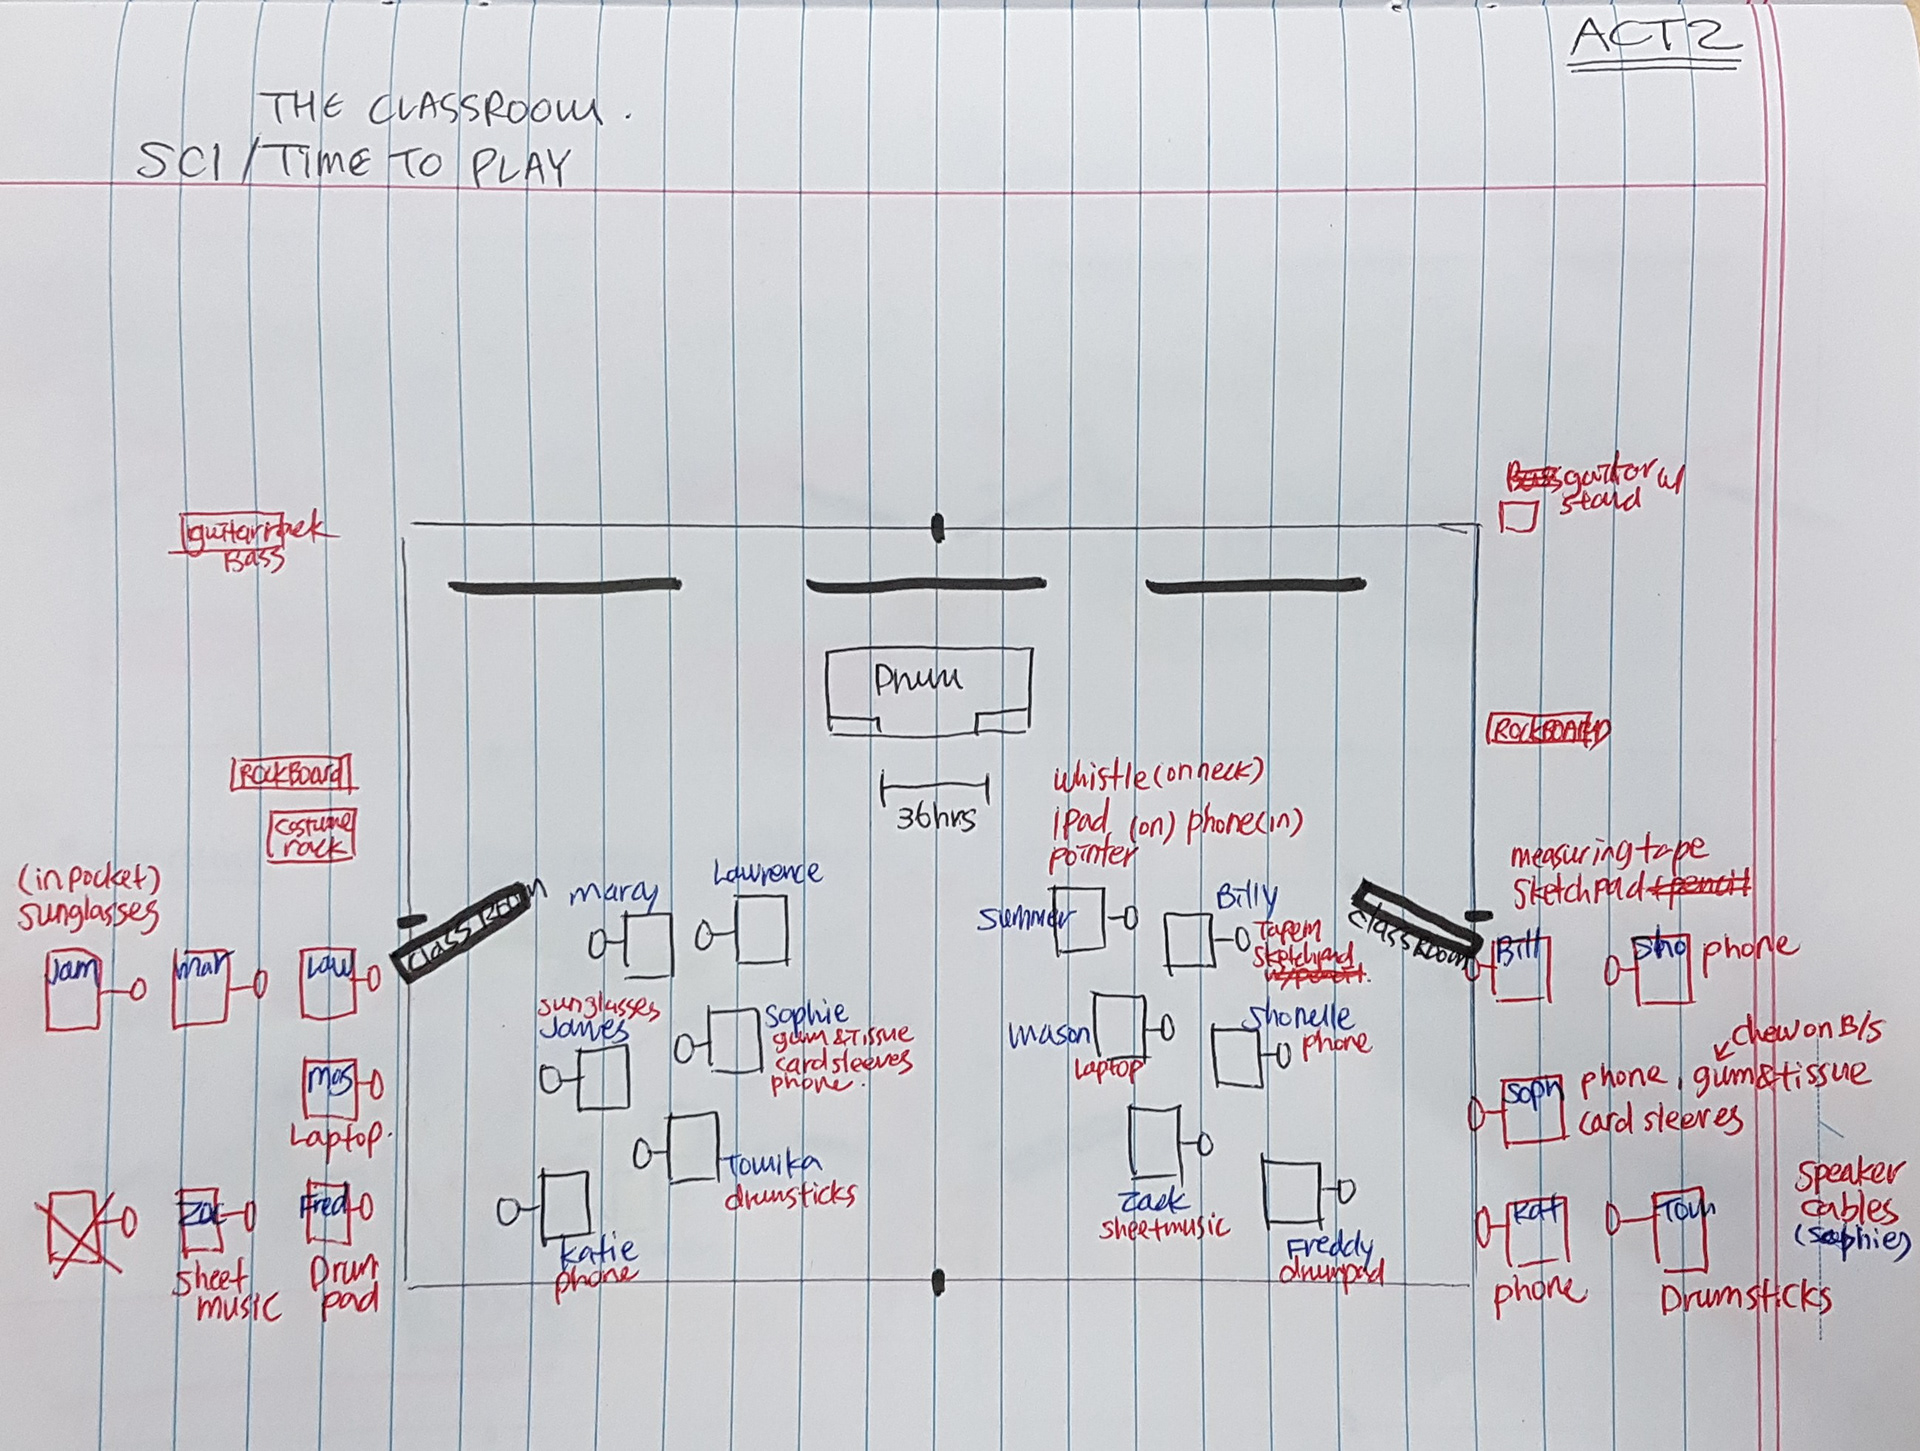 ACT 2
THE CLASSROOM.
SC1 / TIME TO PLAY
guitar w/
stand
Bass
Drum
ROCKBOARD
ROCKBOARD
costume
rack
36hrs
whistle (on neck)
ipad (on) phone (in)
pointer
measuring tape
sketchpad
(in pocket)
sunglasses
CLASSROOM
marcy
Lawrence
summer
Billy
Tapem
sketchpad
CLASSROOM
Jam
mar
Law
Bill
Sho
phone
sunglasses
James
Sophie
gum & Tissue
card sleeves
phone.
mason
Laptop
Shonelle
phone
chew on B/S
Mas
Laptop.
Soph
phone, gum & tissue
card sleeves
Tomika
drumsticks
Zack
sheetmusic
Speaker
cables
(sophie)
Zac
Fred
Kat
Tom
Sheet
music
Drum
pad
Katie
phone
Freddy
drumpad
phone
Drumsticks